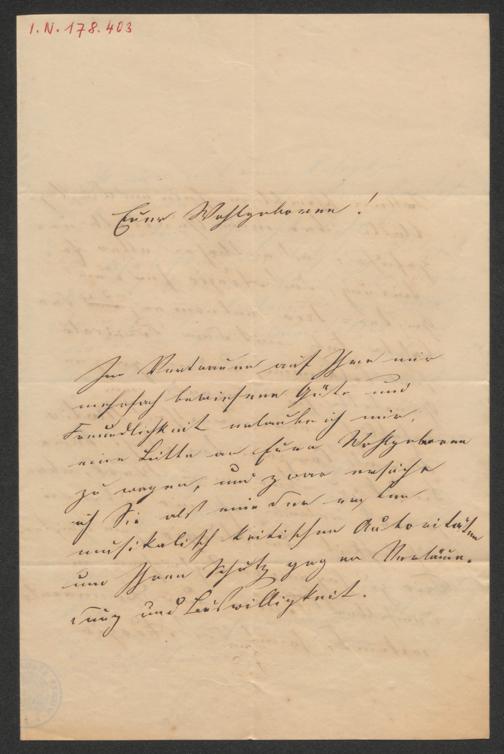 I.N. 178.403
Euer Wohlgeboren!
Im Vertrauen auf Ihre mir
mehrfach bewiesene Güte und
Freundlichkeit erlaube ich mir,
eine Bitte an Euer Wohlgeboren
zu wagen, und zwar ersuche
ich Sie als eine der ersten
musikalisch kritischen Autoritäten
um Ihren Schutz gegen Verläum-
dung und Böswilligkeit.